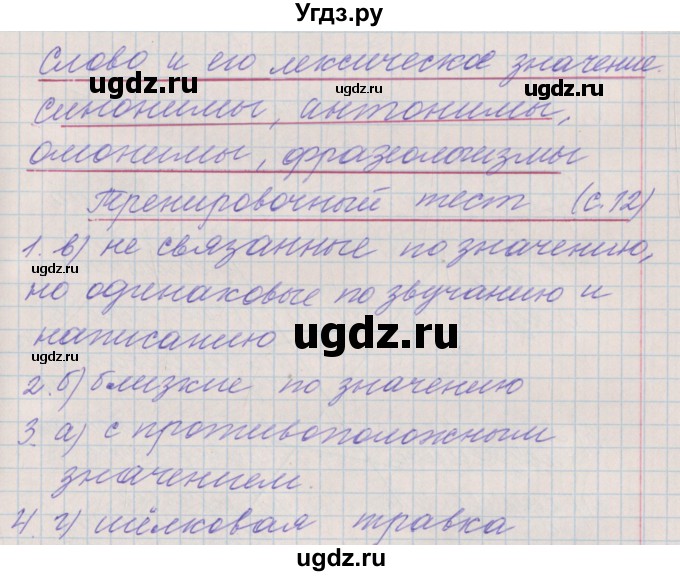 Угдз.ру
Слово и его лексическое значение.
ugdz.ru
ugdz.ru
ugdz.ru
синонимы, антонимы,
омонимы, фразеологизмы
ugdz.ru
ugdz.ru
Тренировочный тест (с.12)
1. в) не связанные по значению,
ugdz.ru
но одинаковые по звучанию и
написанию
ugdz.ru
ugdz.ru
2. б) близкие по значению
3. а) с противоположным
значением.
4. г) шёлковая травка
ugdz.ru
ugdz.ru